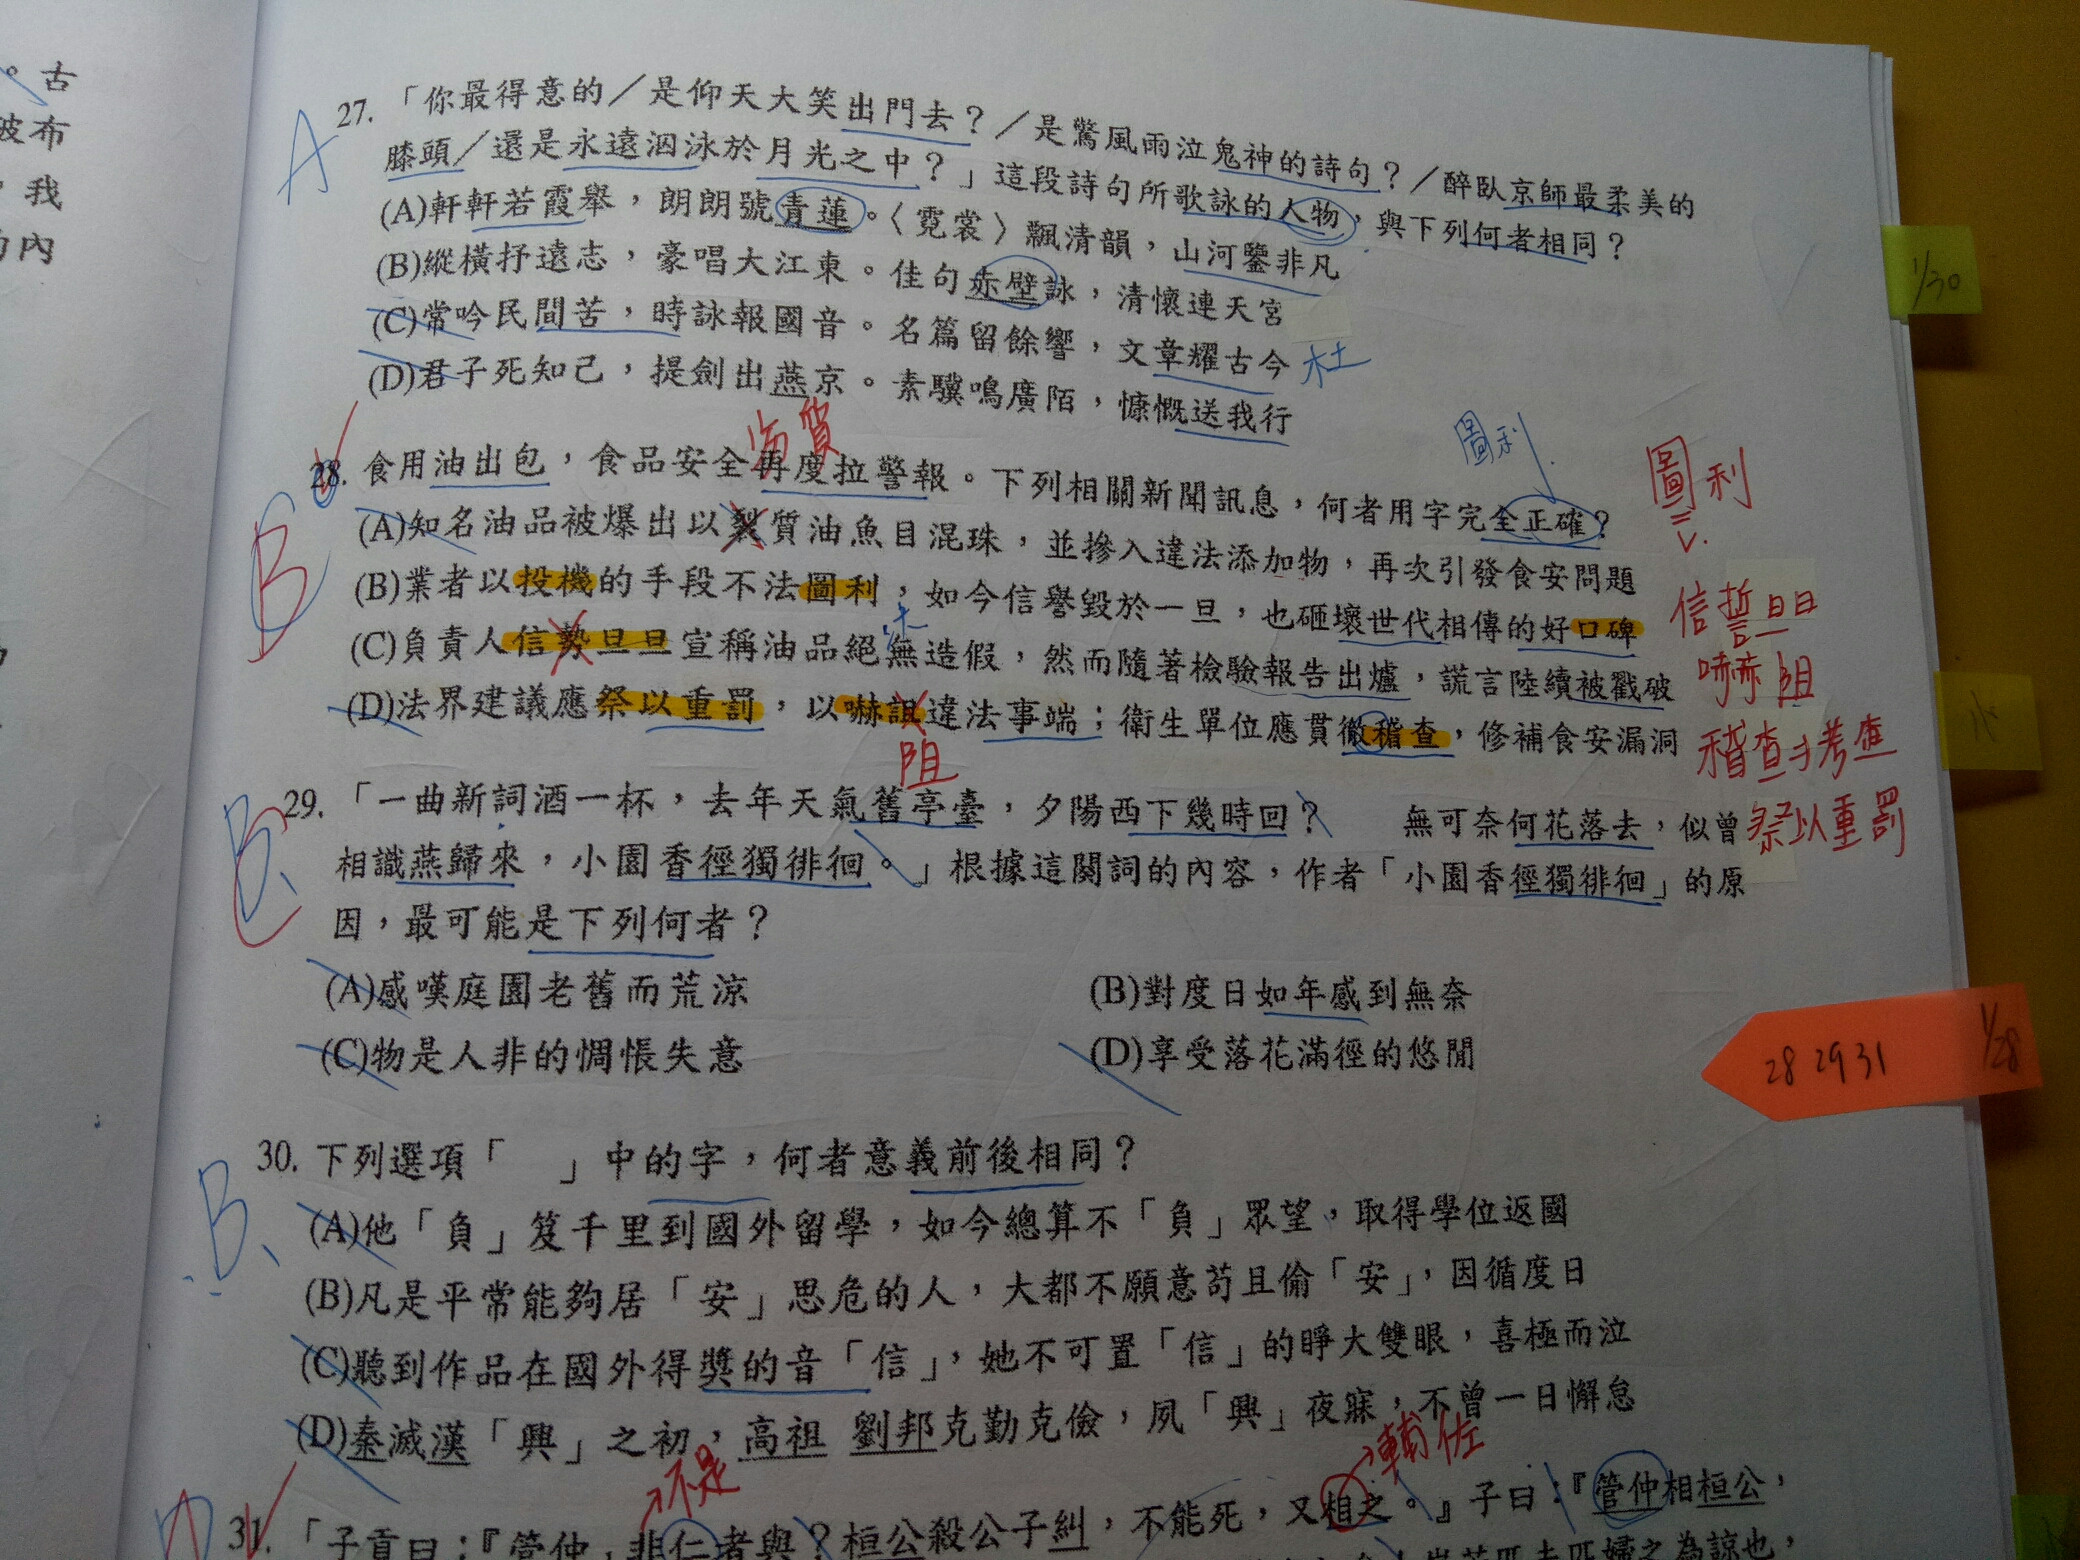 。古
破布
，我
的內
27. 「你最得意的／是仰天大笑出門去？／是驚風雨泣鬼神的詩句？／醉臥京師最柔美的
膝頭／還是永遠泅泳於月光之中？」這段詩句所歌詠的人物，與下列何者相同？
A
(A)軒軒若霞舉，朗朗號青蓮。〈霓裳〉飄清韻，山河鑒非凡
(B)縱橫抒遠志，豪唱大江東。佳句赤壁詠，清懷連天宮
(C)常吟民間苦，時詠報國音。名篇留餘響，文章耀古今
杜
(D)君子死知己，提劍出燕京。素驥鳴廣陌，慷慨送我行
28. 食用油出包，食品安全再度拉警報。下列相關新聞訊息，何者用字完全正確？
B
圖利
圖利
(A)知名油品被爆出以製質油魚目混珠，並摻入違法添加物，再次引發食安問題
(B)業者以投機的手段不法圖利，如今信譽毀於一旦，也砸壞世代相傳的好口碑
(C)負責人信勢旦旦宣稱油品絕無造假，然而隨著檢驗報告出爐，謊言陸續被戳破
信誓旦旦
(D)法界建議應祭以重罰，以嚇詛違法事端；衛生單位應貫徹稽查，修補食安漏洞
嚇阻
阻
稽查
考查
祭以重罰
29. 「一曲新詞酒一杯，去年天氣舊亭臺，夕陽西下幾時回？　無可奈何花落去，似曾
相識燕歸來，小園香徑獨徘徊。」根據這闋詞的內容，作者「小園香徑獨徘徊」的原
因，最可能是下列何者？
(A)感嘆庭園老舊而荒涼 (B)對度日如年感到無奈
(C)物是人非的惆悵失意 (D)享受落花滿徑的悠閒
30. 下列選項「　」中的字，何者意義前後相同？
B
(A)他「負」笈千里到國外留學，如今總算不「負」眾望，取得學位返國
(B)凡是平常能夠居「安」思危的人，大都不願意苟且偷「安」，因循度日
(C)聽到作品在國外得獎的音「信」，她不可置「信」的睜大雙眼，喜極而泣
(D)秦滅漢「興」之初，高祖 劉邦克勤克儉，夙「興」夜寐，不曾一日懈怠
不是
輔佐
31. 「子貢曰：『管仲」非仁者與？桓公殺公子糾，不能死，又相之。』子曰：『管仲相桓公，
匹夫匹婦之為諒也，
1/30
28 29 31
1/28